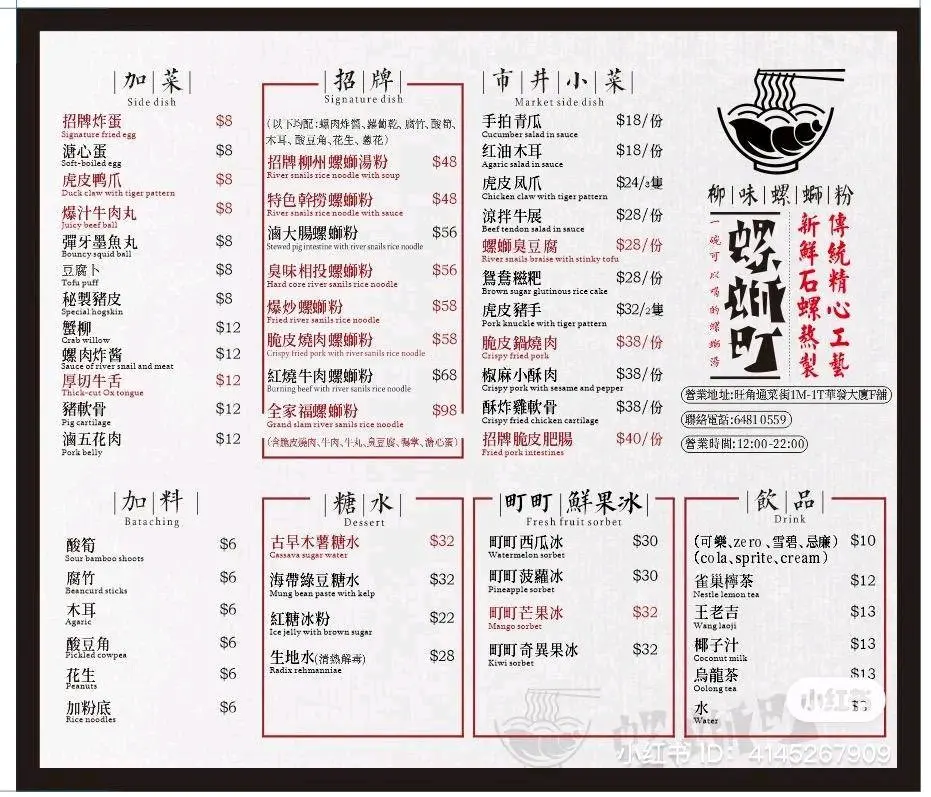 加菜
Side dish
招牌炸蛋 $8
Signature fried egg
溏心蛋 $8
Soft-boiled egg
虎皮鸭爪 $8
Duck claw with tiger pattern
爆汁牛肉丸 $8
Juicy beef ball
彈牙墨魚丸 $8
Bouncy squid ball
豆腐卜 $8
Tofu puff
秘製豬皮 $8
Special hogskin
蟹柳 $12
Crab willow
螺肉炸酱 $12
Sauce of river snail and meat
厚切牛舌 $12
Thick-cut Ox tongue
豬軟骨 $12
Pig cartilage
滷五花肉 $12
Pork belly
招牌
Signature dish
(以下均配:螺肉炸醬、蘿蔔乾、腐竹、酸筍、
木耳、酸豆角、花生、蔥花)
招牌柳州螺螄湯粉 $48
River snails rice noodle with soup
特色幹撈螺螄粉 $48
River snails rice noodle with sauce
滷大腸螺螄粉 $56
Stewed pig intestine with river snails rice noodle
臭味相投螺螄粉 $56
Hard core river sanils rice noodle
爆炒螺螄粉 $58
Fried river sanils rice noodle
脆皮燒肉螺螄粉 $58
Crispy fried pork with river sanils rice noodle
紅燒牛肉螺螄粉 $68
Burning beef with river sanils rice noodle
全家福螺螄粉 $98
Grand slam river sanils rice noodle
(含脆皮燒肉、牛肉、牛丸、臭豆腐、鴨掌、溏心蛋)
市井小菜
Market side dish
手拍青瓜 $18/份
Cucumber salad in sauce
红油木耳 $18/份
Agaric salad in sauce
虎皮凤爪 $24/3隻
Chicken claw with tiger pattern
涼拌牛展 $28/份
Beef tendon salad in sauce
螺螄臭豆腐 $28/份
River snails braise with stinky tofu
鴛鴦糍粑 $28/份
Brown sugar glutinous rice cake
虎皮豬手 $32/2隻
Pork knuckle with tiger pattern
脆皮鍋燒肉 $38/份
Crispy fried pork
椒麻小酥肉 $38/份
Crispy pork with sesame and pepper
酥炸雞軟骨 $38/份
Crispy fried chicken cartilage
招牌脆皮肥腸 $40/份
Fried pork intestines
柳味螺螄粉
一碗可以喝的螺螄湯
螺螄町
新鮮石螺熬製
傳統精心工藝
營業地址:旺角通菜街1M-1T華發大廈F舖
聯絡電話:6481 0559
營業時間:12:00-22:00
加料
Bataching
酸筍 $6
Sour bamboo shoots
腐竹 $6
Beancurd sticks
木耳 $6
Agaric
酸豆角 $6
Pickled cowpea
花生 $6
Peanuts
加粉底 $6
Rice noodles
糖水
Dessert
古早木薯糖水 $32
Cassava sugar water
海帶綠豆糖水 $32
Mung bean paste with kelp
紅糖冰粉 $22
Ice jelly with brown sugar
生地水(清熱解毒) $28
Radix rehmanniae
町町鮮果冰
Fresh fruit sorbet
町町西瓜冰 $30
Watermelon sorbet
町町菠蘿冰 $30
Pineapple sorbet
町町芒果冰 $32
Mango sorbet
町町奇異果冰 $32
Kiwi sorbet
飲品
Drink
(可樂、zero、雪碧、忌廉) $10
(cola、sprite、cream)
雀巢檸茶 $12
Nestle lemon tea
王老吉 $13
Wang laoji
椰子汁 $13
Coconut milk
烏龍茶 $13
Oolong tea
水
Water
小红书
小红书 ID: 4145267909